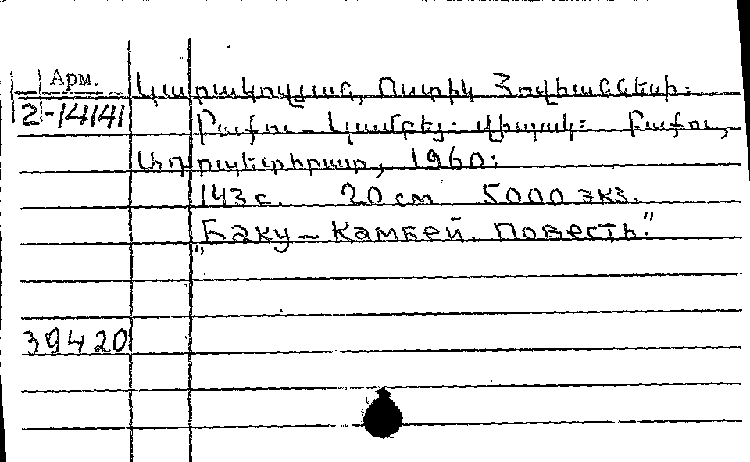 Арм.
2-14141
Կարակոզյան, Ոստիկ Հովհաննեսի:
Բաքու - Կամբեյ: Վիպակ: Բաքու,
Ադրպետհրատ, 1960:
143 с. 20 см 5000 экз.
"Баку - Камбей. Повесть."
39420